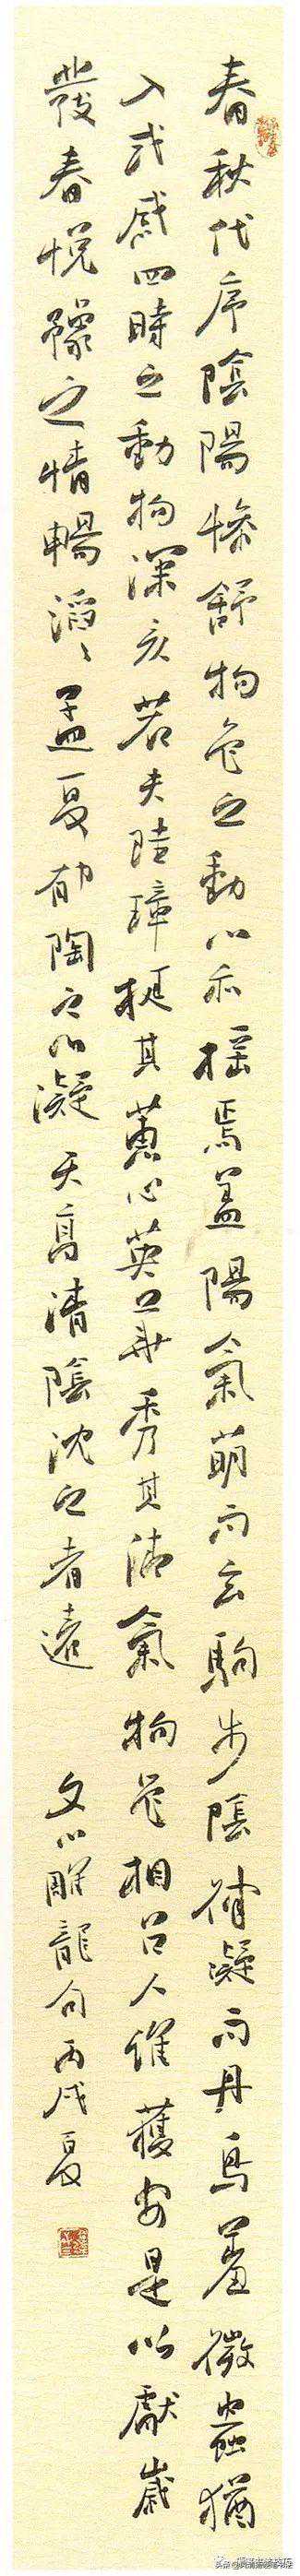 春秋代序陰陽慘舒物色之動心亦搖焉蓋陽氣萌而玄駒步陰律凝而丹鳥羞微蟲猶
入或感四時之動物深矣若夫珪璋挺其蕙心英華秀其清氣物色相召人誰獲安是以獻歲
發春悅豫之情暢滔〻孟夏郁陶之心凝天高清陰沈之者遠
文心雕龍句丙戌夏